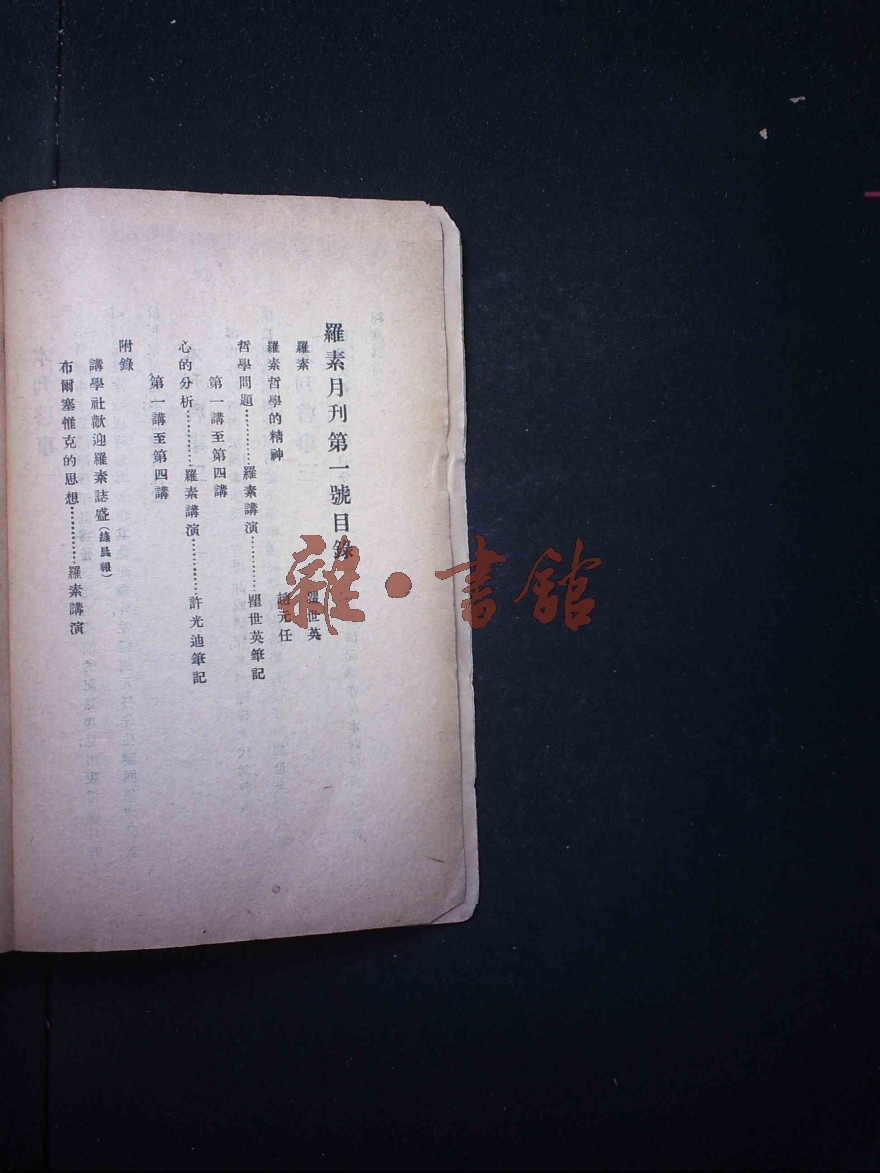 羅素月刊第一號目錄
羅素 瞿世英
羅素哲學的精神 趙元任
哲學問題…………羅素講演…………瞿世英筆記
第一講至第四講
心的分析…………羅素講演…………許光迪筆記
第一講至第四講
附錄
講學社歡迎羅素誌盛（錄晨報）
布爾塞維克的思想…………羅素講演
雜·書館